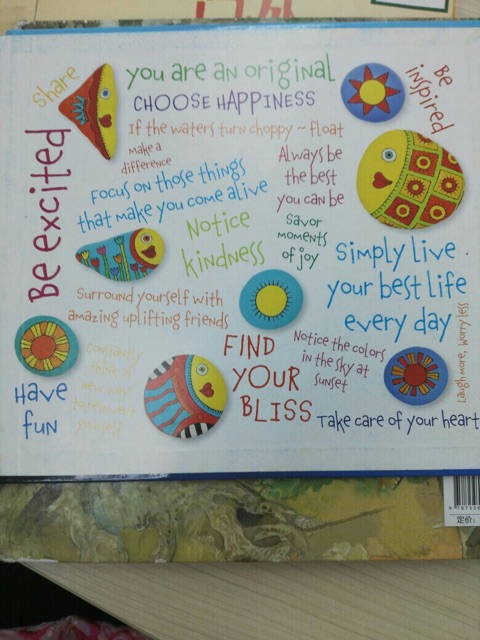 share
you are an original
CHOOSE HAPPINESS
Be
inspired
If the waters turn choppy ~ float
make a
difference
Be excited
Focus on those things
that make you come alive
Always be
the best
you can be
Notice
kindness
Savor
moments
of joy
Simply live
your best life
every day
Surround yourself with
amazing uplifting friends
FIND
YOUR
BLISS
Notice the colors
in the sky at
sunset
Laugh more, worry less
Constantly
think of
new ways
to reinvent
yourself
Have
fun
Take care of your heart
定价: